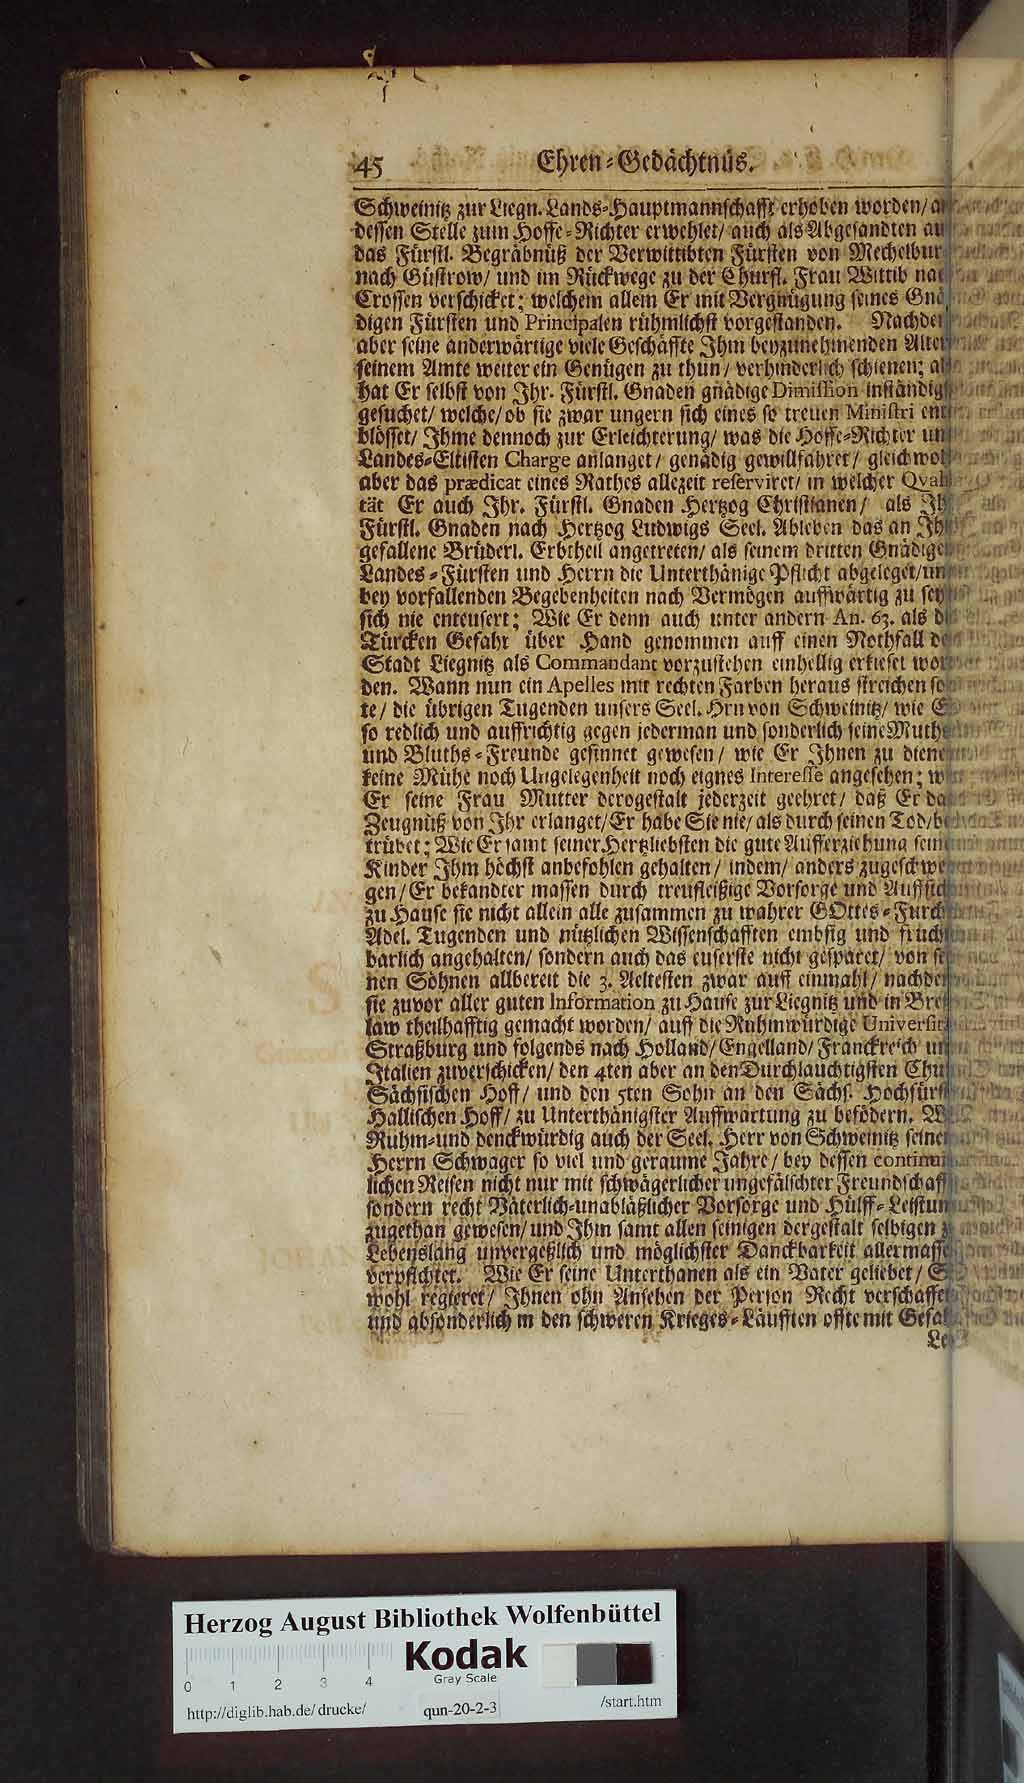 45 Ehren-Gedächtnüs.
Schweinitz zur Liegn. Lands-Hauptmannschafft erhoben worden/ a
dessen Stelle zum Hoffe-Richter erwehlet/ auch als Abgesandten au
das Fürstl. Begräbnüß der Verwittibten Fürsten von Mechelbur
nach Güstrow/ und im Rückwege zu der Churfl. Frau Wittib nat
Crossen verschicket; welchem allem Er mit Vergnügung seines Gnä
digen Fürsten und Principalen rühmlichst vorgestanden. Nachdem
aber seine anderwärtige viele Geschäffte Ihm beyzunehmenden Alter
seinem Amte weiter ein Genügen zu thun/ verhinderlich schienen; al
hat Er selbst von Ihr. Fürstl. Gnaden gnädige Dimission inständig
gesuchet/ welche/ ob sie zwar ungern sich eines so treuen Ministri ent
blösset/ Ihme dennoch zur Erleichterung/ was die Hoffe-Richter un
Landes-Eltisten Charge anlanget/ genädig gewillfahret/ gleichwol
aber das prædicat eines Rathes allezeit reserviret/ in welcher Qvali
tät Er auch Ihr. Fürstl. Gnaden Hertzog Christianen/ als Ih
Fürstl. Gnaden nach Hertzog Ludwigs Seel. Ableben das an Ih
gefallene Brüderl. Erbtheil angetreten/ als seinem dritten Gnädige
Landes-Fürsten und Herrn die Unterthänige Pflicht abgeleget/ un
bey vorfallenden Begebenheiten nach Vermögen auffwärtig zu sey
sich nie enteusert; Wie Er denn auch unter andern An. 63. als d
Türcken Gefahr über Hand genommen auff einen Nothfall de
Stadt Liegnitz als Commandant vorzustehen einhellig erkieset wor
den. Wann nun ein Apelles mit rechten Farben heraus streichen so
te/ die übrigen Tugenden unsers Seel. Hrn von Schweinitz/ wie E
so redlich und auffrichtig gegen jederman und sonderlich seine Muths
und Bluths-Freunde gesinnet gewesen/ wie Er Ihnen zu diene
keine Mühe noch Ungelegenheit noch eignes Interesse angesehen; w
Er seine Frau Mutter derogestalt jederzeit geehret/ daß Er da
Zeugnüß von Ihr erlanget/ Er habe Sie nie/ als durch seinen Tod/ be
trübet; Wie Er samt seiner Hertzliebsten die gute Aufferziehung seine
Kinder Ihm höchst anbefohlen gehalten/ indem/ anders zugeschwe
gen/ Er bekandter massen durch treufleißige Vorsorge und Auffsic
zu Hause sie nicht allein alle zusammen zu wahrer GOttes-Furch
Adel. Tugenden und nützlichen Wissenschafften embsig und frucht
barlich angehalten/ sondern auch das euserste nicht gesparet/ von se
nen Söhnen allbereit die 3. Aeltesten zwar auff einmahl/ nachdem
sie zuvor aller guten Information zu Hause zur Liegnitz und in Bre
law theilhafftig gemacht worden/ auff die Ruhmwürdige Universit
Straßburg und folgends nach Holland/ Engelland/ Franckreich un
Italien zuverschicken/ den 4ten aber an den Durchlauchtigsten Chu
Sächsischen Hoff/ und den 5ten Sohn an den Sächs. Hochfürst
Hallischen Hoff/ zu Unterthänigster Auffwartung zu befödern. W
Ruhm-und denckwürdig auch der Seel. Herr von Schweinitz seine
Herrn Schwager so viel und geraume Jahre/ bey dessen continui
lichen Reisen nicht nur mit schwägerlicher ungefälschter Freundschaff
sondern recht Väterlich-unabläßlicher Vorsorge und Hülff-Leistun
zugethan gewesen/ und Ihm samt allen seinigen dergestalt selbigen z
Lebenslang unvergeßlich und möglichster Danckbarkeit allermasse
verpflichtet. Wie Er seine Unterthanen als ein Vater geliebet/ S
wohl regieret/ Ihnen ohn Ansehen der Person Recht verschaffe
und absonderlich in den schweren Krieges-Läufften offte mit Gefal
Le
Herzog August Bibliothek Wolfenbüttel
Kodak
Gray Scale
0 1 2 3 4
http://diglib.hab.de/drucke/ qun-20-2-3 /start.htm